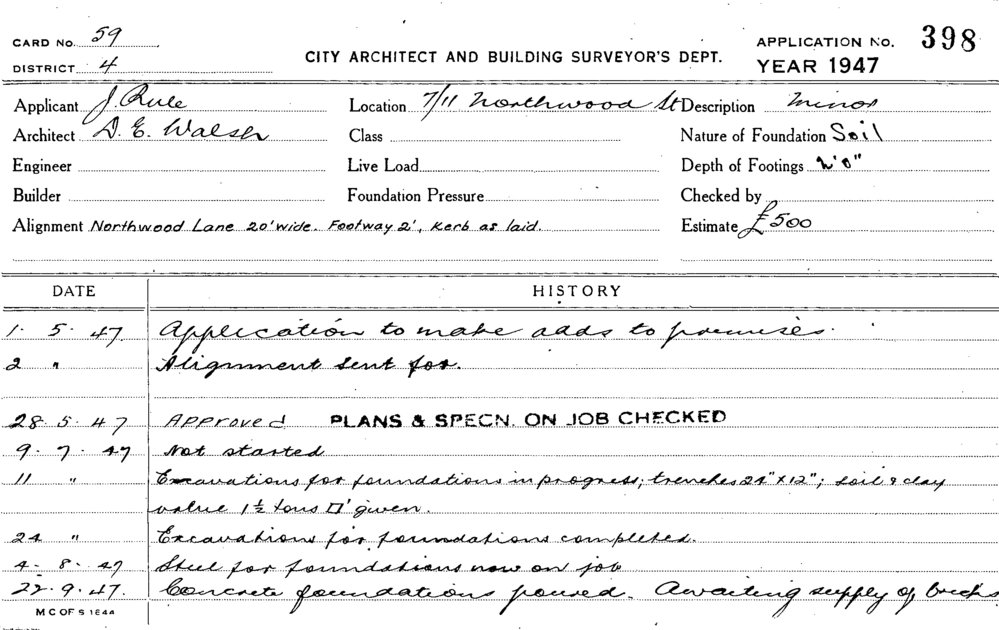 CARD No. 59
DISTRICT 4
CITY ARCHITECT AND BUILDING SURVEYOR'S DEPT.
APPLICATION No. 398
YEAR 1947
Applicant J. Rule Location 7/11 Northwood St Description Minor
Architect D. E. Walsh Class Nature of Foundation Soil
Engineer Live Load Depth of Footings 2'0"
Builder Foundation Pressure Checked by
Alignment Northwood Lane 20' wide. Footway 2', Kerb as laid. Estimate £500
DATE HISTORY
1. 5. 47 Application to make adds to premises.
2 " Alignment sent for.
28. 5. 47 Approved PLANS & SPECN. ON JOB CHECKED
9. 7. 47 Not started
11 " Excavations for foundations in progress; trenches 24" x 12"; soil & clay
value 1½ tons □' given.
24 " Excavations for foundations completed.
4. 8. 47 Steel for foundations now on job
22. 9. 47. Concrete foundations poured. Awaiting supply of bricks
M C OF S 1844